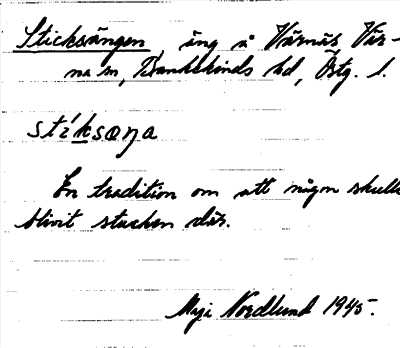 Sticksängen, äng å Värnäs Vär-
na sn, Bankekinds hd, Östg. l.
stiksæŋa
En tradition om att någon skulle
blivit stucken där.
Maji Nordlund 1945.